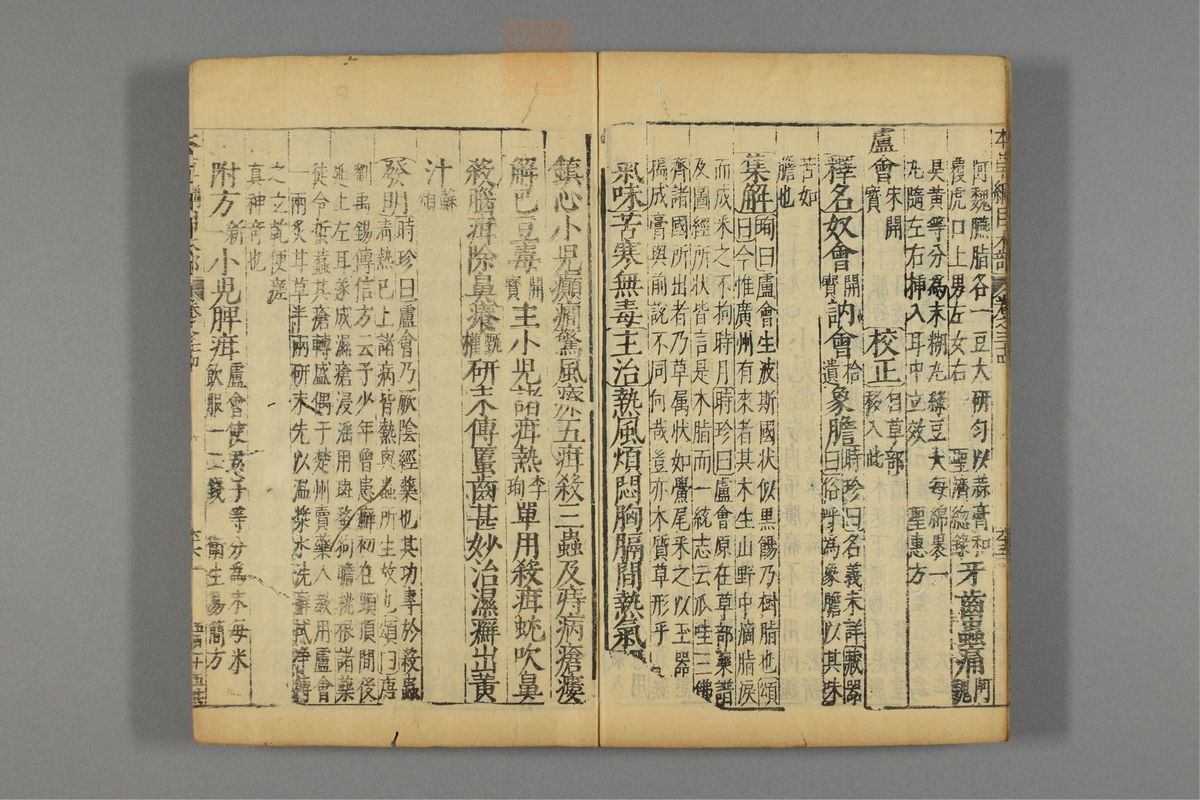 本草綱目木部 卷之三十四
阿魏臙脂各一豆大研勻以蒜膏和
覆虎口上男左女右 聖濟總錄 牙齒蟲痛 阿魏
臭黃等分爲末糊丸綠豆大每綿裹一
丸隨左右插入耳中立效 聖惠方
盧會 宋開寶 校正 自草部移入此
釋名奴會 開寶 訥會 拾遺 象膽 時珍曰名義未詳藏器曰俗呼為象膽以其味
苦如膽也
集解 珣曰盧會生波斯國狀似黑餳乃樹脂也頌
曰今惟廣州有來者其木生山野中滴脂淚
而成釆之不拘時月時珍曰盧會原在草部藥譜
及圖經所狀皆言是木脂而一統志云爪哇三佛
齊諸國所出者乃草屬狀如鱟尾釆之以玉器
搗成膏與前說不同何哉豈亦木質草形乎
氣味苦寒無毒主治熱風煩悶胸膈間熱氣
鎮心小兒癲癇驚風療五疳殺三蟲及痔病瘡瘻
解巴豆毒 開寶 主小兒諸疳熱 李珣 單用殺疳蚘吹鼻
殺腦疳除鼻癢 甄權 研末傅䘌齒甚妙治濕癬出黃
汁 蘇頌
發明 時珍曰盧會乃厥陰經藥也其功專於殺蟲
清熱已上諸病皆熱與蟲所生故也頌曰唐
劉禹錫傳信方云予少年曾患癬初在頸項間後
延上左耳遂成濕瘡浸淫用斑蝥狗膽桃根諸藥
徒令蜇蠚其瘡轉盛偶于楚州賣藥人教用盧會
一兩炙甘草半兩研末先以溫漿水洗癬拭淨傅
之立乾便瘥
真神奇也
附方 新一 小兒脾疳 盧會使君子等分爲末每米
飲服一二錢 衛生易簡方